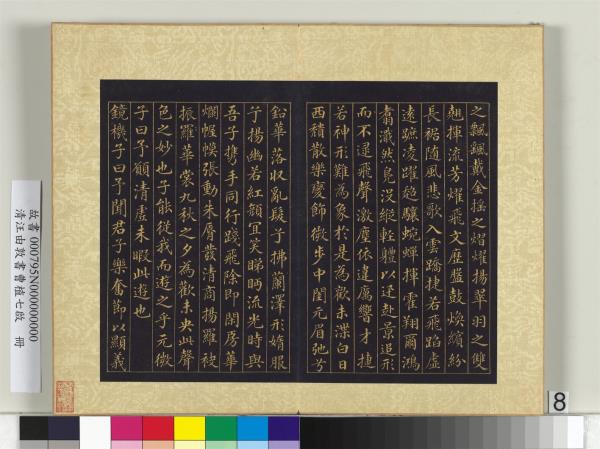 之飄颻戴金搖之熠燿揚翠羽之雙
翹揮流芳燿飛文歷盤鼓煥繽紛
長裾隨風悲歌入雲蹻捷若飛蹈虛
遠蹠淩躍超驤蜿蟬揮霍翔爾鴻
翥濈然鳧沒縱輕體以迅赴景追形
而不逮飛聲激塵依違厲響才捷
若神形難為象於是為歡未渫白日
西頹散樂變飾微步中閨元眉弛兮
鉛華落收亂髮兮拂蘭澤形媠服
兮揚幽若紅顏宜笑睇眄流光時與
吾子攜手同行踐飛除即閒房華
燭爛幄幕張動朱脣發清商揚羅袂
振華裳九秋之夕為歡未央此聲
色之妙也子能從我而遊之乎元微
子曰予願清虛未暇此遊也
鏡機子曰予聞君子樂奮節以顯義
故書 000795N000000000
清汪由敦書曹植七啟 冊
8